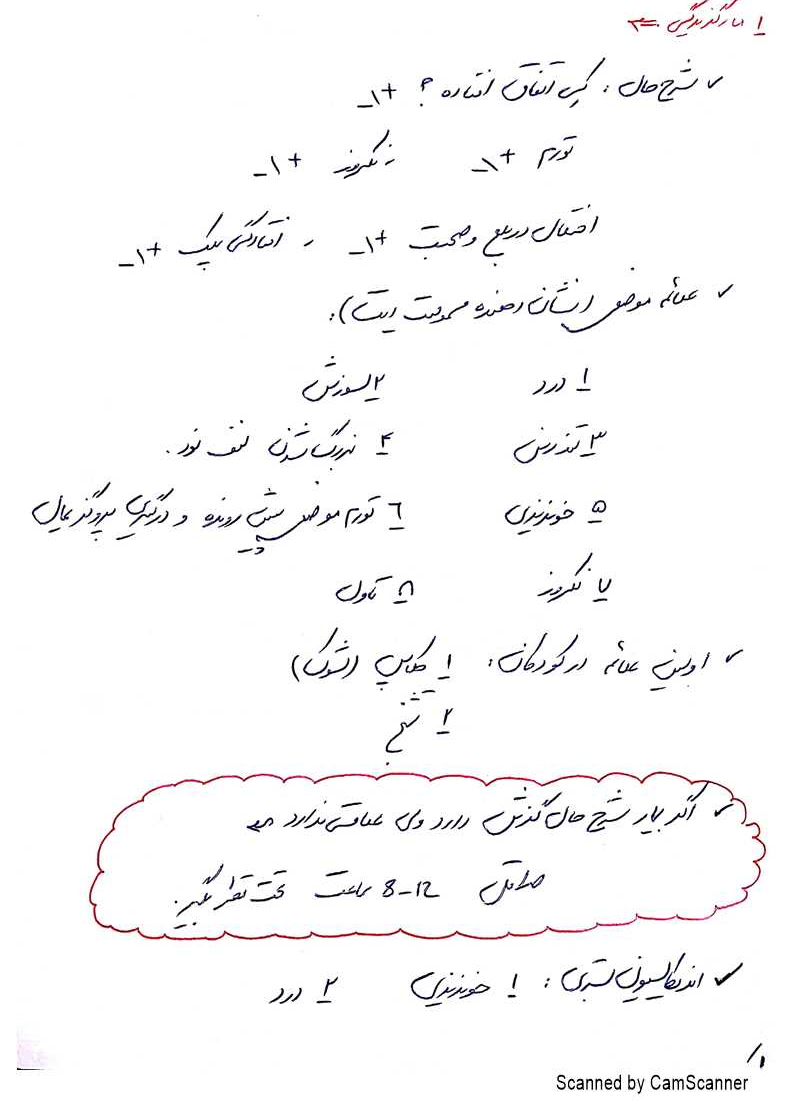 ۱ مارگزیدگی ⇐
✓ شرح حال: کی اتفاق افتاده؟ +۱-
تورم +۱- نکروز +۱-
اختلال در بلع و صحبت +۱- ، افتادگی پلک +۱-
✓ علائم موضعی (نشان دهنده مسمومیت است):
۱ درد ۲ سوزش
۳ تندرنس ۴ بزرگ شدن لنف نود.
۵ خونریزی ۶ تورم موضعی پیش رونده و درگیری پروگزیمال
۷ نکروز ۸ تاول
✓ اولین علائم در کودکان: ۱ کلاپس (شوک)
۲ تشنج
✓ اگر بیمار شرح حال گزش دارد ولی علامتی ندارد ⇐
حداقل 8-12 ساعت تحت نظر بگیر.
✓ اندیکاسیون بستری: ۱ خونریزی ۲ درد
۱/
Scanned by CamScanner